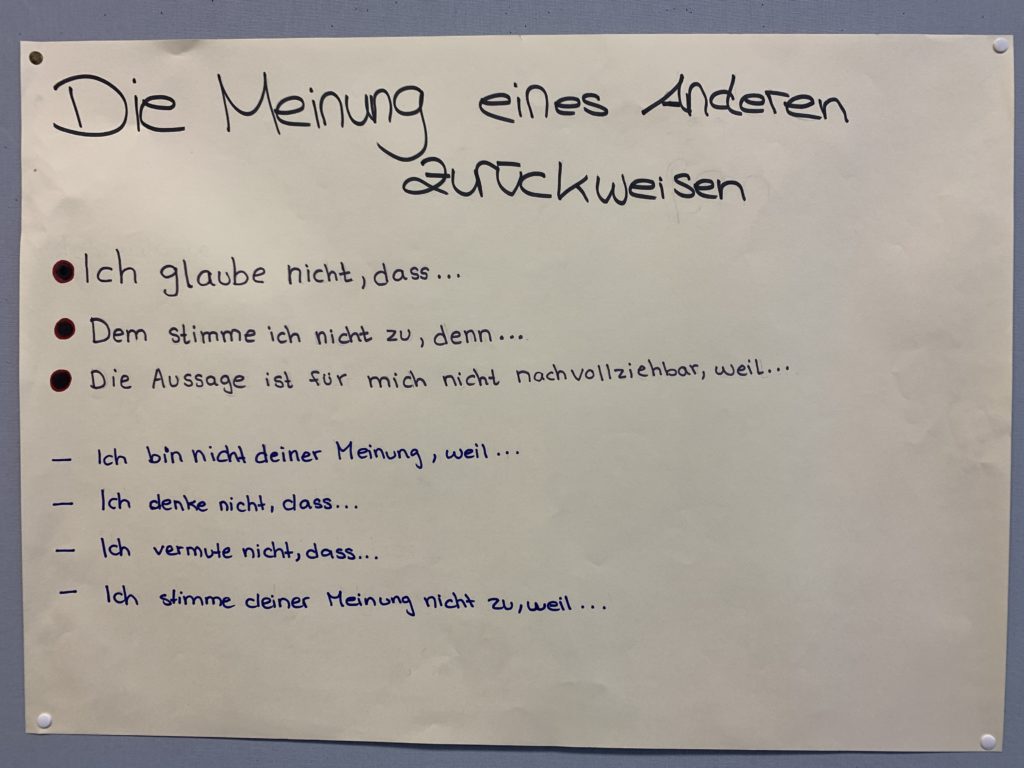 Die Meinung eines Anderen
zurückweisen
● Ich glaube nicht, dass...
● Dem stimme ich nicht zu, denn...
● Die Aussage ist für mich nicht nachvollziehbar, weil...
– Ich bin nicht deiner Meinung, weil...
– Ich denke nicht, dass...
– Ich vermute nicht, dass...
– Ich stimme deiner Meinung nicht zu, weil...